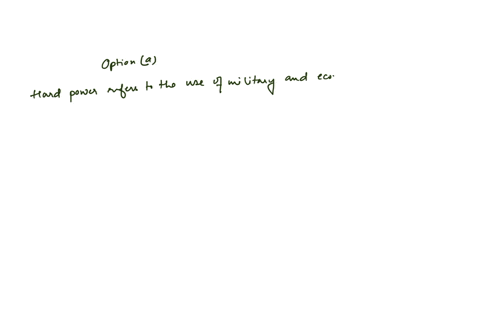 Option (a)
Hard power refers to the use of military and eco.